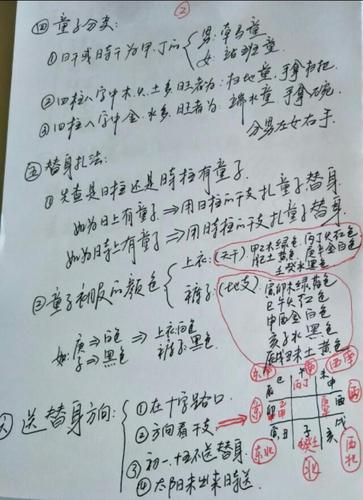 ②
四 童子分类:
①日干或时干为甲、丁的 { 男:牵马童
女:站班童
②四柱八字中木、火、土多旺者为:扫地童,手拿扫把
③四柱八字中金、水多旺者为:端水童,手拿碗
分男左女右手
五 替身扎法:
①先查是日柱还是时柱有童子.
如为日上有童子⇒用日柱的干支扎童子替身.
如为时上有童子⇒用时柱的干支扎童子替身
②童子衣服的颜色 { 上衣:(天干).甲乙木绿色.丙丁火红色
戊己土黄色.庚辛金白色
壬癸水黑色
裤子:(地支).寅卯木绿色
巳午火红色
申酉金白色
亥子水黑色
辰戌丑未土黄色
如:庚⇒白色 ⇒上衣白色
子⇒黑色 裤子黑色
六 送替身方向:
①在十字路口.
②方向看干支
③初一、十五不送替身.
④太阳未出来时送
东南 南 西南
辰 巳 午 未 申
丙丁
东 卯 甲乙 庚辛 酉 西
寅 丑 子 亥 戌
壬癸
东北 北 西北